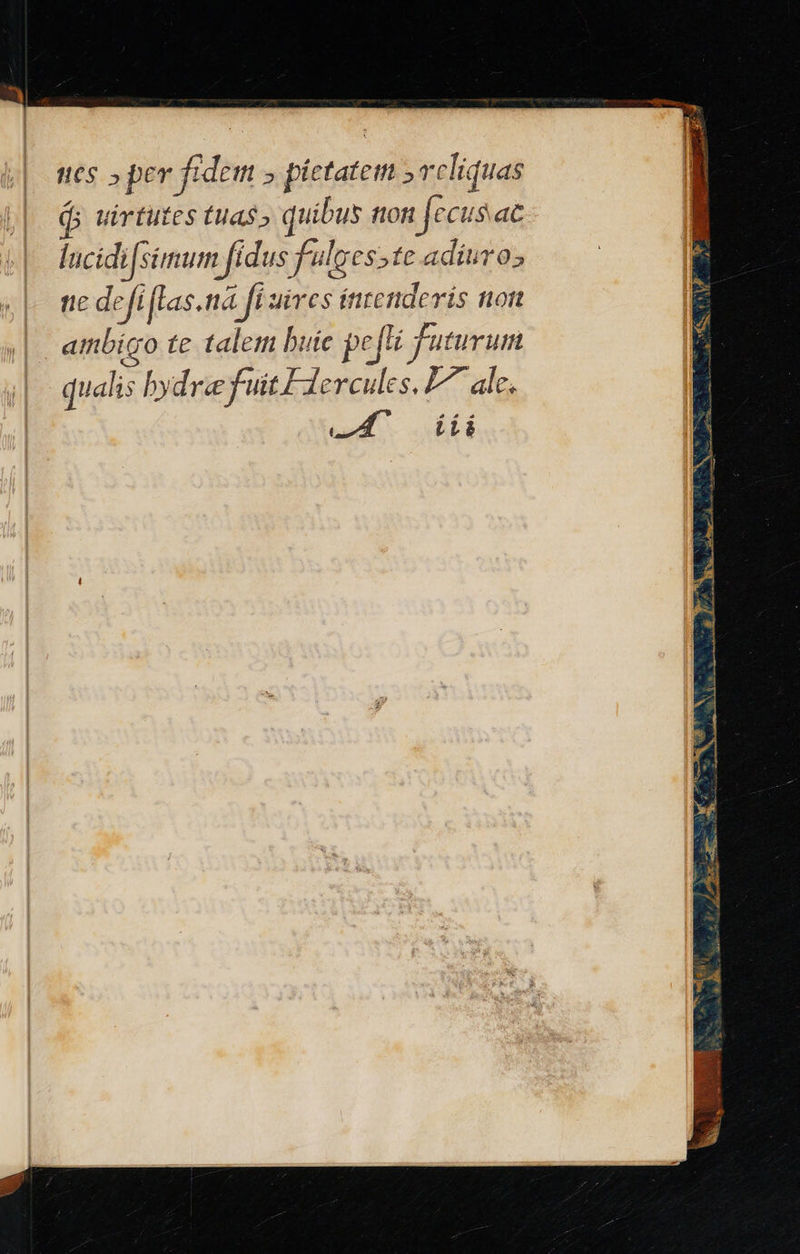 nes , per fidem , pietatem , reliquas
q́; uirtutes tuas, quibus non ſecus ac
lucidiſsimum ſidus fulges, te adiuro,
ne deſiſtas. nã ſi uires intenderis non
ambigo te talem huic peſti futurum
qualis hydræ fuit Hercules. Vale.
A iii